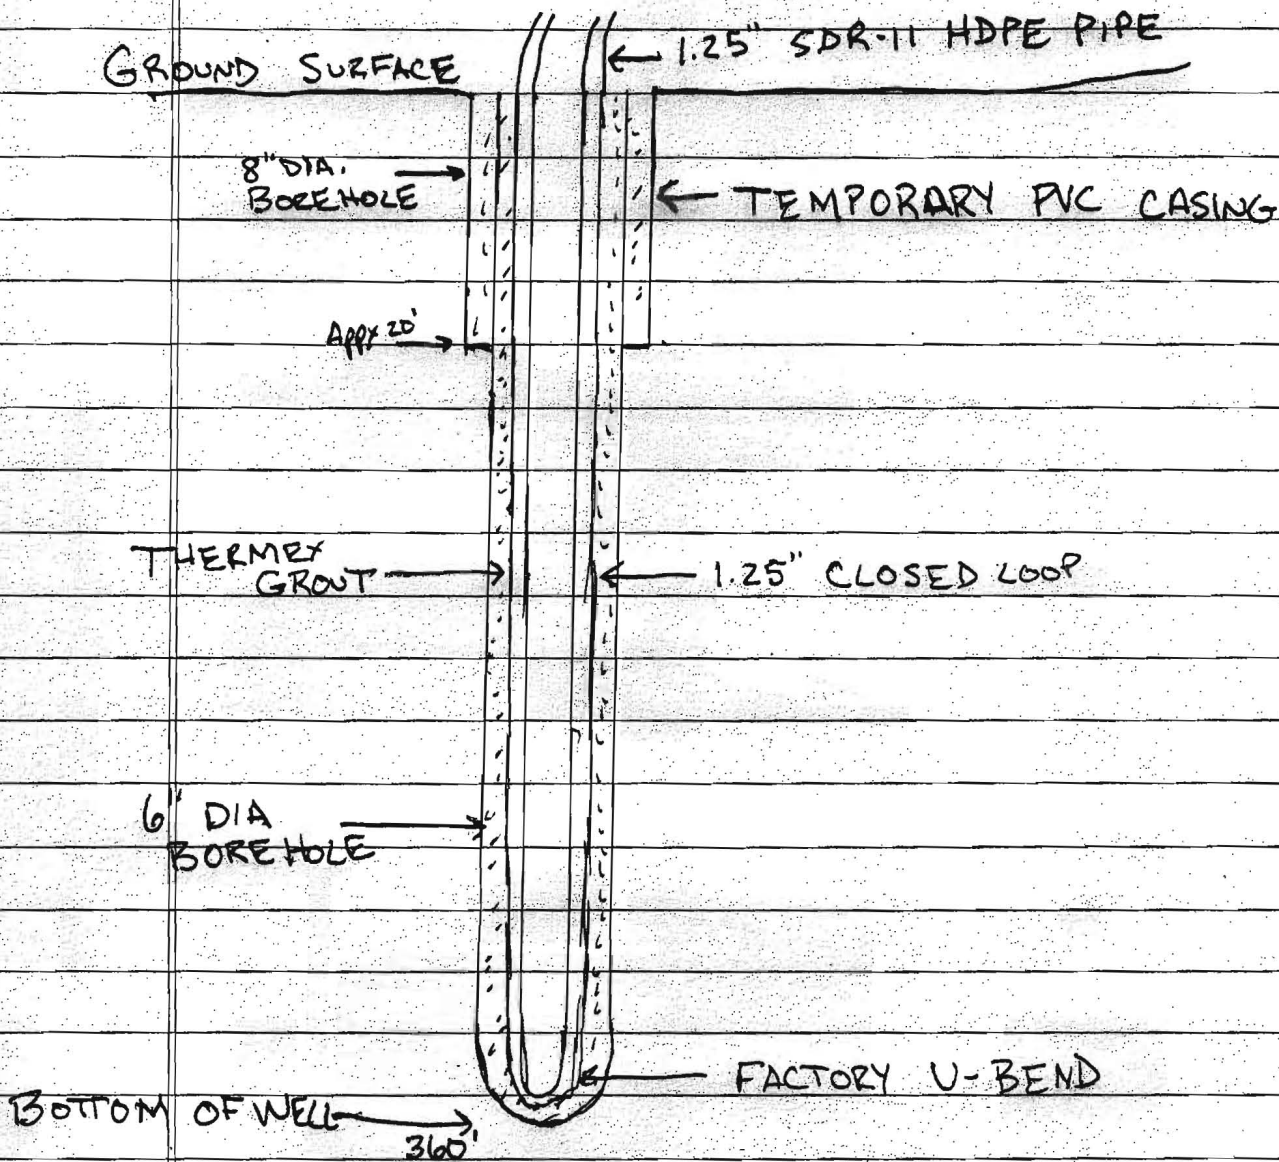 1.25" SDR-11 HDPE PIPE
GROUND SURFACE
8" DIA.
BOREHOLE
TEMPORARY PVC CASING
Appx 20'
THERMEX
GROUT
1.25" CLOSED LOOP
6" DIA
BOREHOLE
FACTORY U-BEND
BOTTOM OF WELL
360'